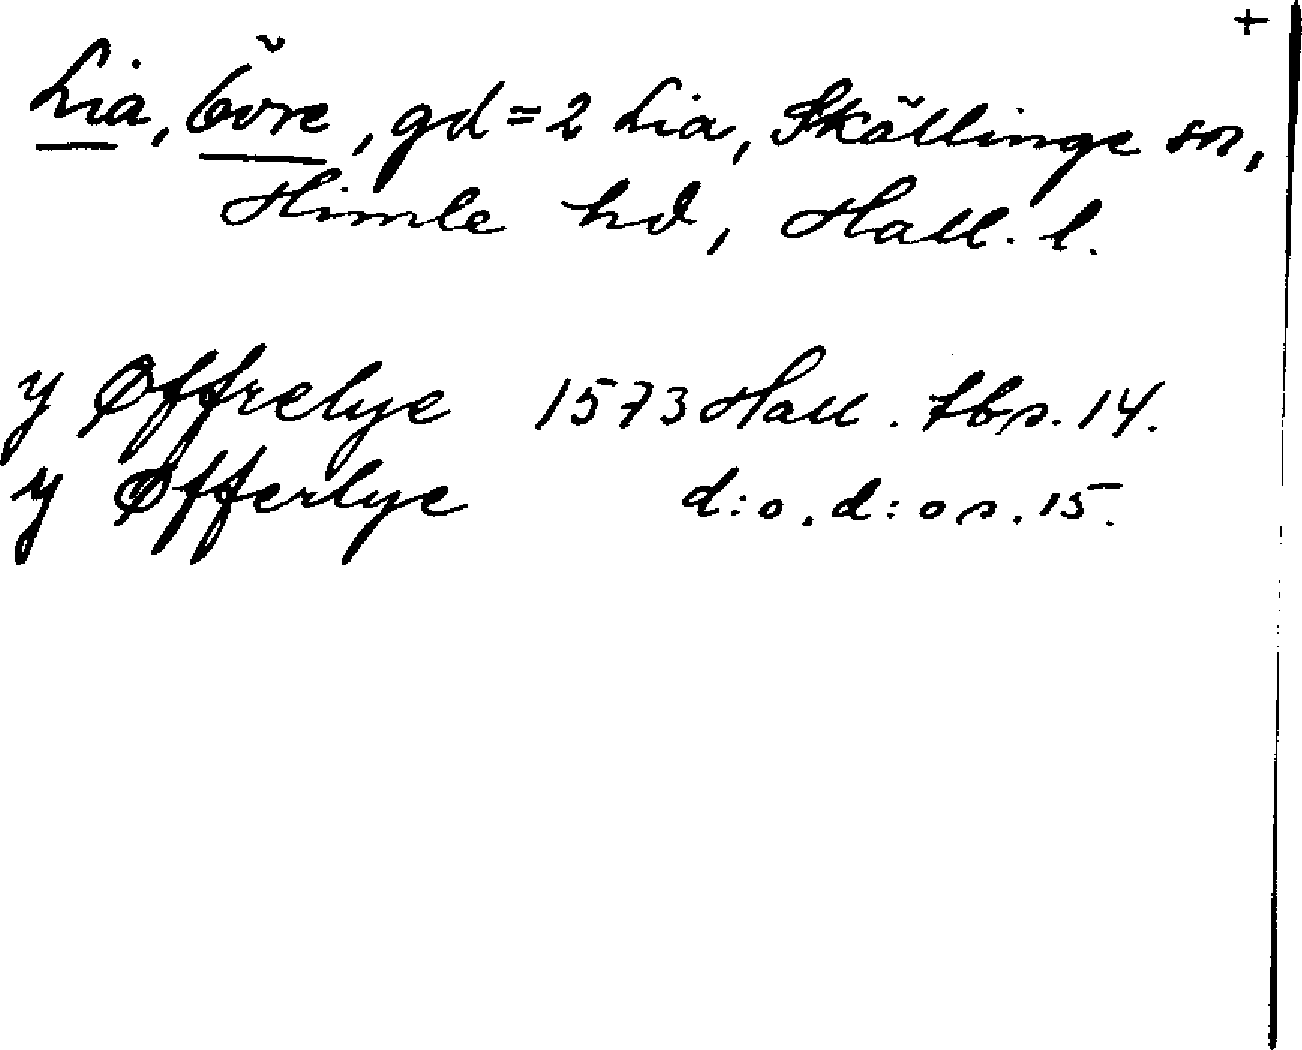 +
Lia, Övre, gd = 2 Lia, Skällinge sn,
Himle hd, Hall. l.
y Øffrelye 1573 Hall. tb s. 14.
y Øfferlye d:o. d:o s. 15.